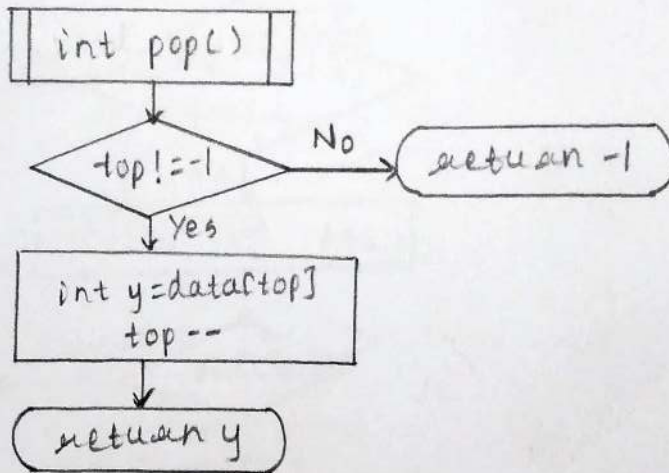 int pop()
top!=-1
No
return -1
Yes
int y=data[top]
top --
return y